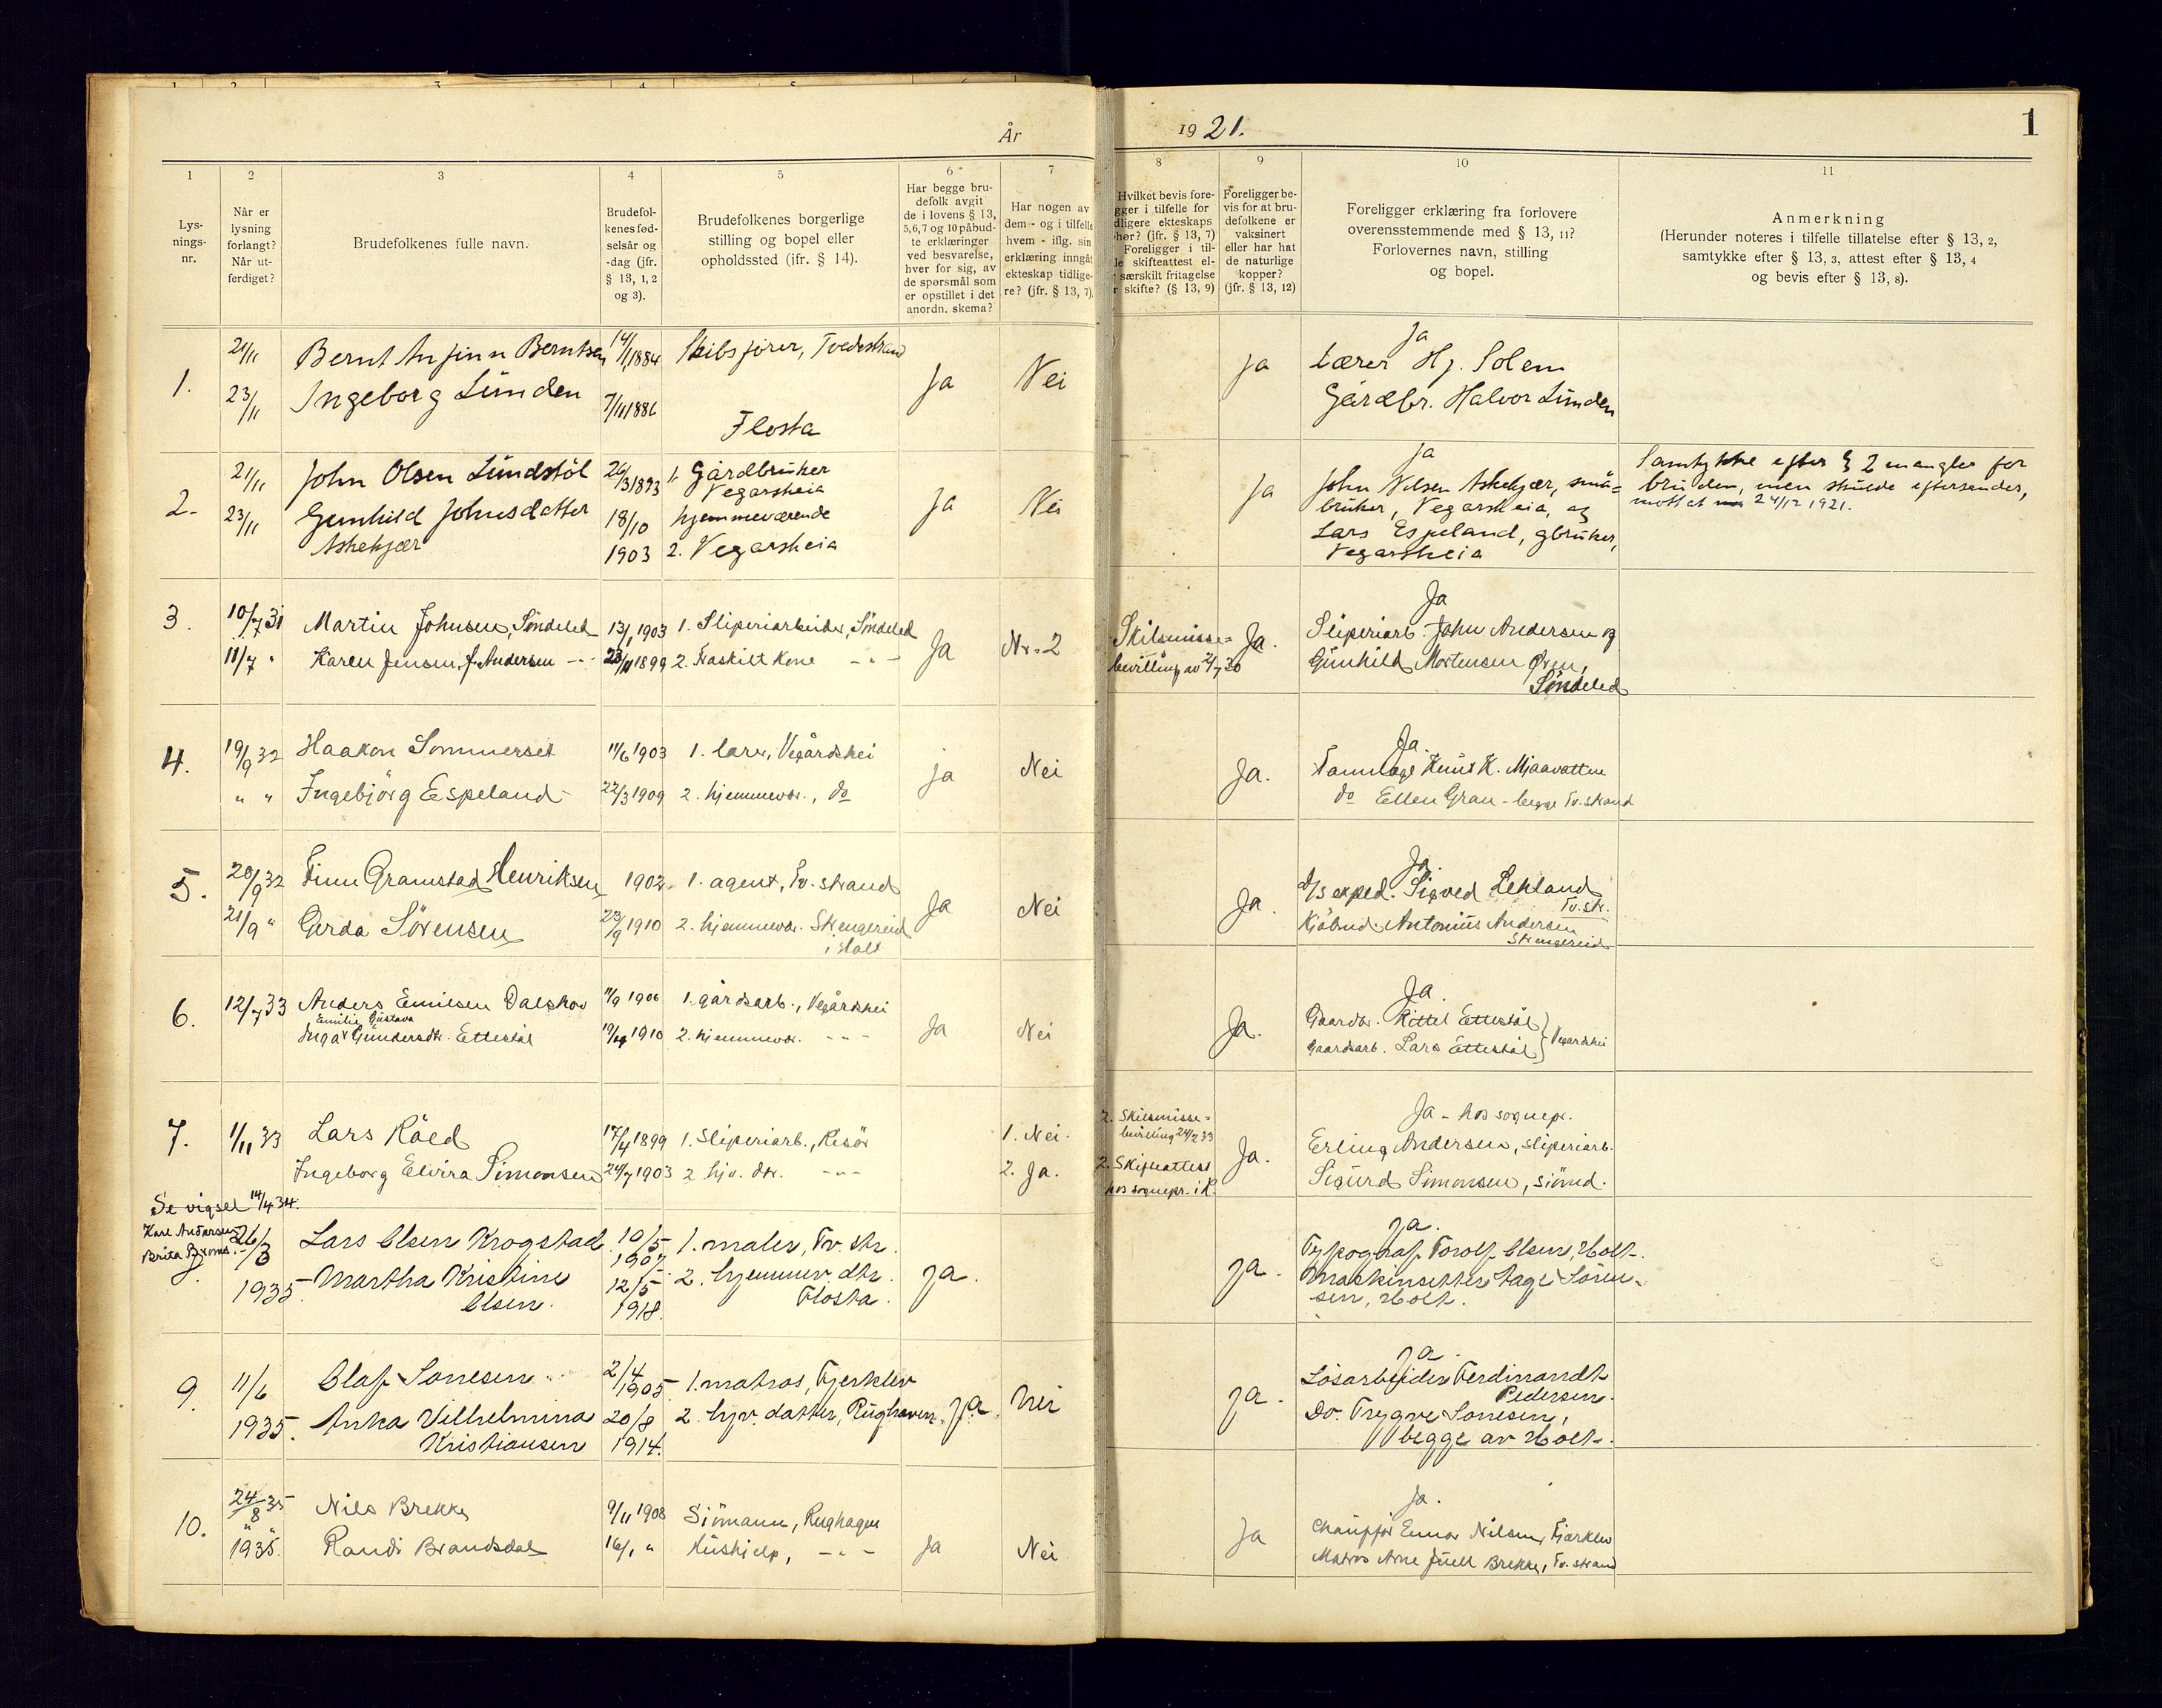 År
19 21.
1
1 2 3 4 5 6 7 8 9 10 11
Lys-
nings-
nr.
Når er
lysning
forlangt?
Når ut-
ferdiget?
Brudefolkenes fulle navn.
Brudefol-
kenes fød-
selsår og
-dag (jfr.
§ 13, 1, 2
og 3).
Brudefolkenes borgerlige
stilling og bopel eller
opholdssted (jfr. § 14).
Har begge bru-
defolk avgit
de i lovens § 13,
5,6,7 og 10 påbud-
te erklæringer
ved besvarelse,
hver for sig, av
de spørsmål som
er opstillet i det
anordn. skema?
Har nogen av
dem - og i tilfelle
hvem - iflg. sin
erklæring inngåt
ekteskap tidlige-
re? (jfr. § 13, 7)
Hvilket bevis fore-
gger i tilfelle for
dligere ekteskaps
phør? (jfr. § 13, 7)
Foreligger i til-
le skifteattest el-
r særskilt fritagelse
r skifte? (§ 13, 9)
Foreligger be-
vis for at bru-
defolkene er
vaksinert
eller har hat
de naturlige
kopper?
(jfr. § 13, 12)
Foreligger erklæring fra forlovere
overensstemmende med § 13, 11?
Forlovernes navn, stilling
og bopel.
Anmerkning
(Herunder noteres i tilfelle tillatelse efter § 13, 2,
samtykke efter § 13, 3, attest efter § 13, 4
og bevis efter § 13, 8).
1.
21/11
23/11
Bernt Anfinn Berntsen
Ingeborg Lunden
14/1 1884
7/11 1886
Skibsfører, Tvedestrand
Flosta
Ja
Nei
Ja
Ja
Lærer Hj. Solem
Gårdbr. Halvor Lunden
2.
21/11
23/11
John Olsen Lundstöl
Gunhild Johnsdatter
Askekjær
26/3 1893
18/10
1903
1. Gårdbruker
Vegarsheia
hjemmeværende
2. Vegarsheia
Ja
Nei
Ja
Ja
John Nilsen Askekjær, små-
bruker, Vegarsheia, og
Lars Espeland, gbruker,
Vegarsheia
Samtykke efter § 2 mangler for
bruden, men skulde eftersendes,
mottat 24/12 1921.
3.
10/7 31
11/7 "
Martin Johnsen, Söndeled
Karen Jensen, f. Andersen - " -
13/1 1903
23/11 1899
1. Sliperiarbeider, Söndeled
2. Fraskilt kone - " -
Ja
Nr. 2
Skilsmisse-
bevilling av 2/7 30
Ja.
Ja
Sliperiarb. John Andersen og
Gunhild Mortensen Øien,
Söndeled
4.
19/9 32
" "
Haakon Sommerset
Ingebjörg Espeland
11/6 1903
22/3 1909
1. lærer, Vegårdshei
2. hjemmevær., do
ja
Nei
Ja.
Ja.
Knut K. Mjaavatten
do Ellen Grau - begge Tv.strand
5.
20/9 32
21/9 "
Finn Gramstad Henriksen
Gerda Sörensen
1902
23/9 1910
1. agent, Tv. strand
2. hjemmevær. Strengereid
i Holt
Ja
Nei
Ja.
Ja.
d/s exped. Sigved Lekland
Tv.str.
Kjöbmd. Antonius Andersen
Strengereid
6.
12/7 33
Anders Emilsen Dalskov
Emilie Gustava
Inga Gundersdtr. Ettestöl
11/9 1906
19/4 1910
1. gårdsarb., Vegårdshei
2. hjemmevær. - " -
Ja
Nei
Ja.
Ja.
Gaardbr. Kittel Ettestöl
Gaardsarb. Lars Ettestöl } Vegardshei
7.
1/11 33
Lars Röed
Ingeborg Elvira Simonsen
17/4 1899
24/7 1903
1. Sliperiarb., Risör
2 hjv. dtr. - " -
1. Nei.
2. Ja.
2. Skilsmisse-
bevilling 24/2 33
2. Skifteattest
hos sognepr. i R.
Ja.
Ja - hos sognepr.
Erling Andersen, sliperiarb.
Sigurd Simonsen, sjömd.
Se vigsel 14/4 34.
Karl Andersen
Brita Broms.
26/3
1935
Lars Olsen Krogstad
Martha Kristine
Olsen.
10/5
1907
12/5
1918.
1. maler, Tv. str.
2. hjemmev. dtr.
Flosta.
ja.
ja.
ja.
Typograf Torolf Olsen Holt.
Maskinsetter Aage Sören-
sen, Holt.
9.
11/6
1935.
Olaf Sonesen
Anka Vilhelmina
Kristiansen
2/4
1905
20/8
1914.
1. matros, Fjerklev
2. hjv. datter, Rughaven.
ja.
nei
ja.
ja.
Lösarbeider Ferdinandt
Pedersen.
Do. Trygve Sonesen,
begge av Holt.
10.
24/8 35
" "
1935.
Nils Brekke
Randi Brandsdal
9/11 1908
16/1 "
Sjömann, Rughagen
Hushjelp, - " -
Ja
Nei
Ja
Ja.
Chauffør Einar Nilsen, Fjærklev
Matros Arne Juell Brekke, Tv. strand